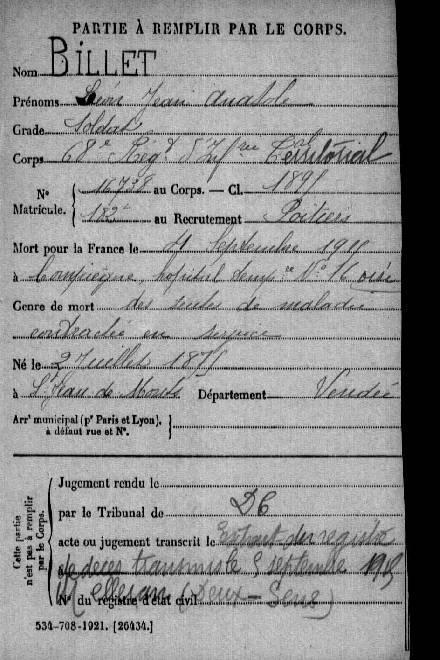 PARTIE À REMPLIR PAR LE CORPS.
Nom BILLET
Prénoms Jean Anatole
Grade Soldat
Corps 68e Régt d'Infrie Territorial
No Matricule. { au Corps. — Cl.
au Recrutement Poitiers
Mort pour la France le Septembre
à Compiègne, hopital temp.re No Oise
Genre de mort des suites de maladie
contractée en service
Né le 2 Juillet
à St Jean de Monts Département Vendée
Arrt municipal (pr Paris et Lyon), à défaut rue et No. }
Cette partie n'est pas à remplir par le Corps.
Jugement rendu le
par le Tribunal de DC
acte ou jugement transcrit le Extrait du registre
de décès transmis le septembre
No du registre d'état civil (Deux-Sèvres)
534-708-1921. [26434.]